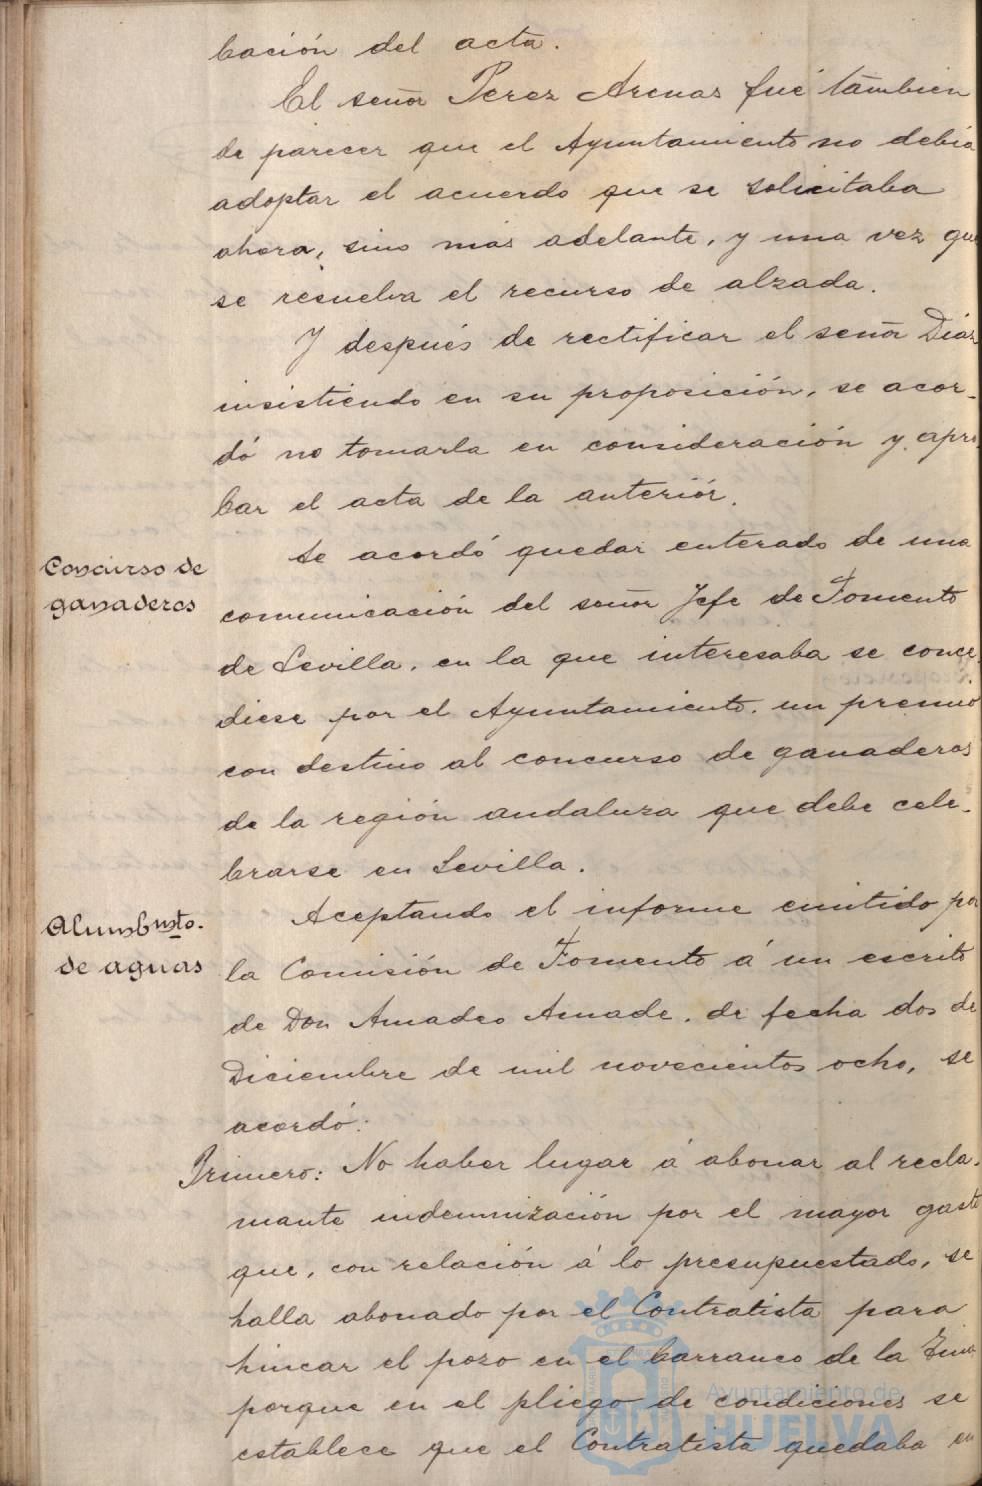 bación del acta.
El señor Perez Arenas fué tambien
de parecer que el Ayuntamiento no debia
adoptar el acuerdo que se solicitaba
ahora, sino más adelante, y una vez que
se resuelva el recurso de alzada.
Y después de rectificar el señor Diáz
insistiendo en su proposición, se acor-
dó no tomarla en consideración y apro-
bar el acta de la anteriór.
Concurso de
ganaderos
Se acordó quedar enterado de una
comunicación del señor Jefe de Fomento
de Sevilla, en la que interesaba se conce-
diese por el Ayuntamiento, un premio
con destino al concurso de ganaderos
de la región andaluza que debe cele-
brarse en Sevilla.
Alumbmto.
de aguas
Aceptando el informe emitido por
la Comisión de Fomento á un escrito
de Don Amadeo Amade, de fecha dos de
Diciembre de mil novecientos ocho, se
acordó:
Primero: No haber lugar á abonar al recla-
mante indemnización por el mayor gasto
que, con relación á lo presupuestado, se
halla abonado por el Contratista para
hincar el pozo en el barranco de la
porque en el pliego de condiciones se
establece que el Contratista quedaba en
Ayuntamiento de
HUELVA